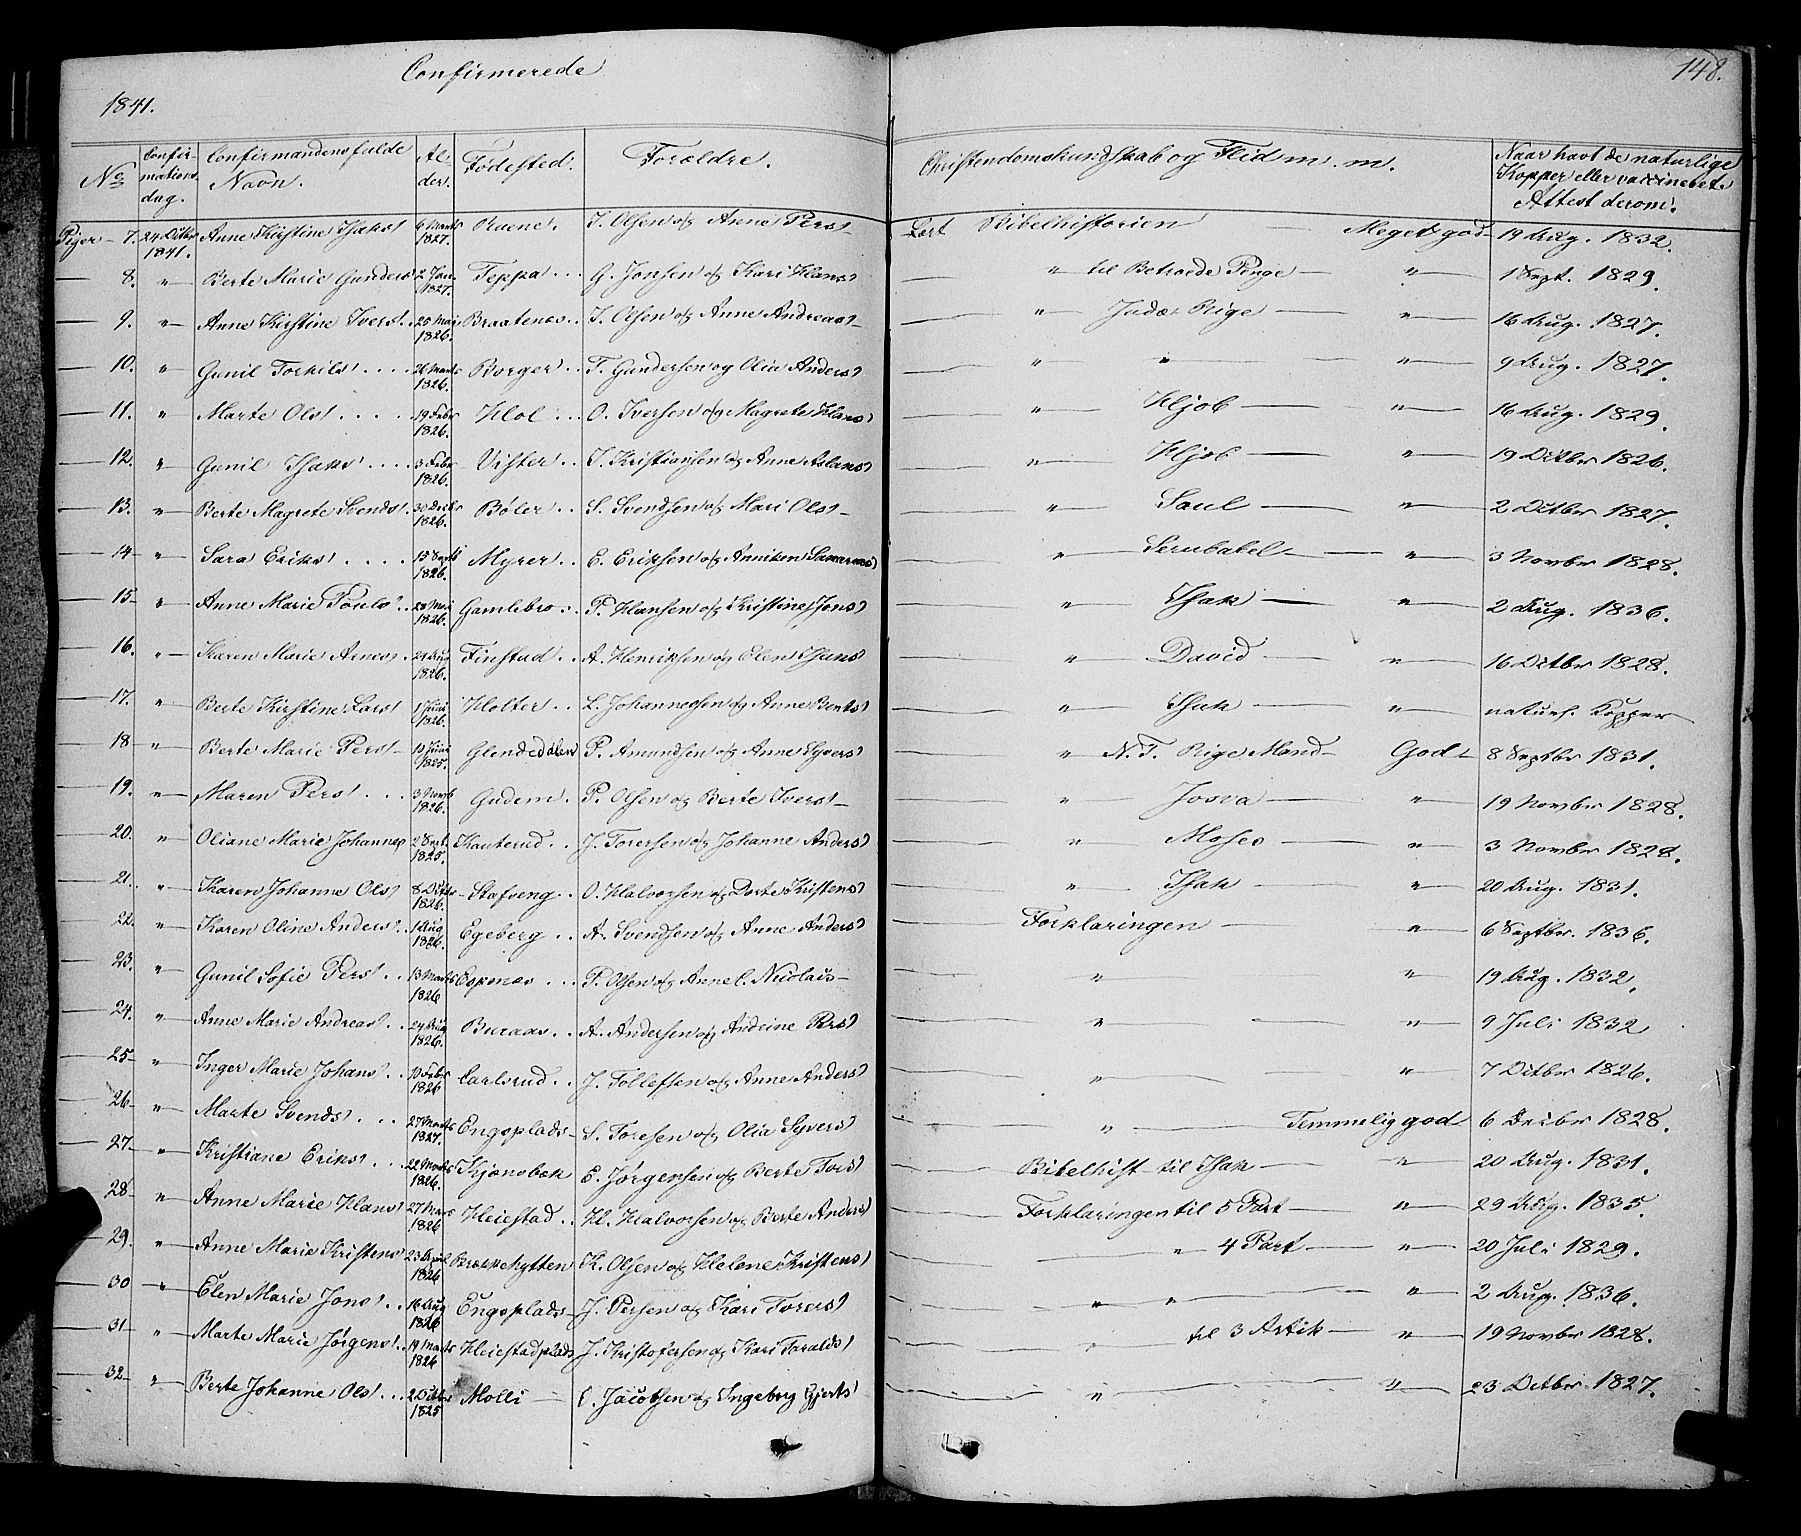 Confirmerede
148.
1841.
No Confirmations dag. Confirmandens fulde Navn. Alder. Fødested. Forældre. Christendomskundskab og Flid m. m. Naar havt de naturlige Kopper eller vaccineret. Attest derom.
Piger 7. 24 Octbr 1841. Anne Kirstine Isaks 6 Marts 1827. Ruene. I. Olsen og Anne Pers Læst Bibelhistorien — Meget god 19 Aug. 1832.
8. " Berte Marie Gunders 2 Jan. 1827. Teppa G. Jonsen og Kari Hans — " til Betroede Penge — " 1 Sept. 1829.
9. " Anne Kirstine Ivers 25 Mai 1826. Braatenæs I. Olsen og Anne Andreas — " Judæ Rige — " 16 Aug. 1827.
10. " Gunil Torkils 26 Marts 1826. Borger T. Gundersen og Olia Anders — " " — " 9 Aug. 1827.
11. " Marte Ols 19 Febr 1826. Hol O. Iversen og Magrete Hans — " Hjob — " 16 Aug. 1829.
12. " Gunil Isaks 3 Febr 1826. Vister I. Kristiansen og Anne Aslans — " Hjob — " 19 Octbr 1826.
13. " Berte Magrete Svends 30 Decbr 1826. Bøler S. Svendsen og Mari Ols — " Saul — " 2 Octbr 1827.
14 " Sara Eriks 1826. Myrer E. Eriksen og Anniken — " Serubabel — " 3 Novbr 1828.
15 " Anne Marie Pouls 1826. Gamlebro P. Hansen og Kristine Jons — " Isak — " 2 Aug. 1836.
16. " Karen Marie Arnes 24 Aug 1826. Finstad A. Henriksen og Elen Isaks — " David — " 16 Octbr 1828.
17. " Berte Kirstine Lars 1826. Holter L. Johannesen og Anne Bents — " Isak — " naturl. Kopper
18 " Berte Marie Pers 1825. Glendedalen P. Amundsen og Anne Syvers " N. T. Rige Mand — God 8 Septbr 1831.
19. " Maren Pers 3 Novb 1826. Gudem P. Olsen og Berte Ivers " Josva — " 19 Novbr 1828.
20. " Oliane Marie Johannes 2 Sept. 1825. Kauterud J. Torersen og Johanne Anders " Moses — " 3 Novbr 1828.
21. " Karen Johanne Ols 8 Octbr 1826. Stafseng O. Halvorsen og Dorte Kristens " Isak — " 20 Aug. 1831.
22. " Karen Oline Anders 1 Aug 1826. Egeberg A. Svendsen og Anne Anders Forklaringen — " 6 Septbr. 1836.
23. " Gunil Sofie Pers 13 Marts 1826 Espenæs P. Olsen og Anne C. Nicolais " " 19 Aug. 1832.
24. " Anne Marie Andreas 24 Aug 1826. Buraas A. Andersen og Andrine Pers " — " 9 Juli 1832
25 " Inger Marie Johans 10 Febr 1826 Carlsrud J. Tollefsen og Anne Anders " — " 7 Octbr 1826.
26 " Marte Svends 27 Marts 1827. Engsplads S. Toresen og Olia Syvers " — Temmelig god 6 Decbr 1828.
27. " Kristiane Eriks 22 Marts 1826. Kjønsbæk E. Jørgensen og Berte Tors Bibelhist til Isak — " 20 Aug. 1831.
28 " Anne Marie Hans 27 Mars 1826 Heiestad H. Halvorsen og Berte Anders Forklaringen til 5 Part — " 29 Aug. 1835.
29. " Anne Marie Kristens 23 April 1826 Brækkehytten K. Olsen og Helene Kristens " 4 Part — " 20 Juli 1829.
30 " Elen Marie Jons 16 Aug 1826 Engsplads J. Persen og Kari Torers " " — " 2 Aug. 1836.
31 " Marte Marie Jørgens 19 Marts 1826 Heiestadplads J. Kristofersen og Kari Taralds " til 3 Artik — " 19 Novbr 1828.
32 " Berte Johanne Ols 2 Octbr 1825 Molli — O. Jacobsen og Ingeborg Gjerts " — " 23 Octbr 1827.